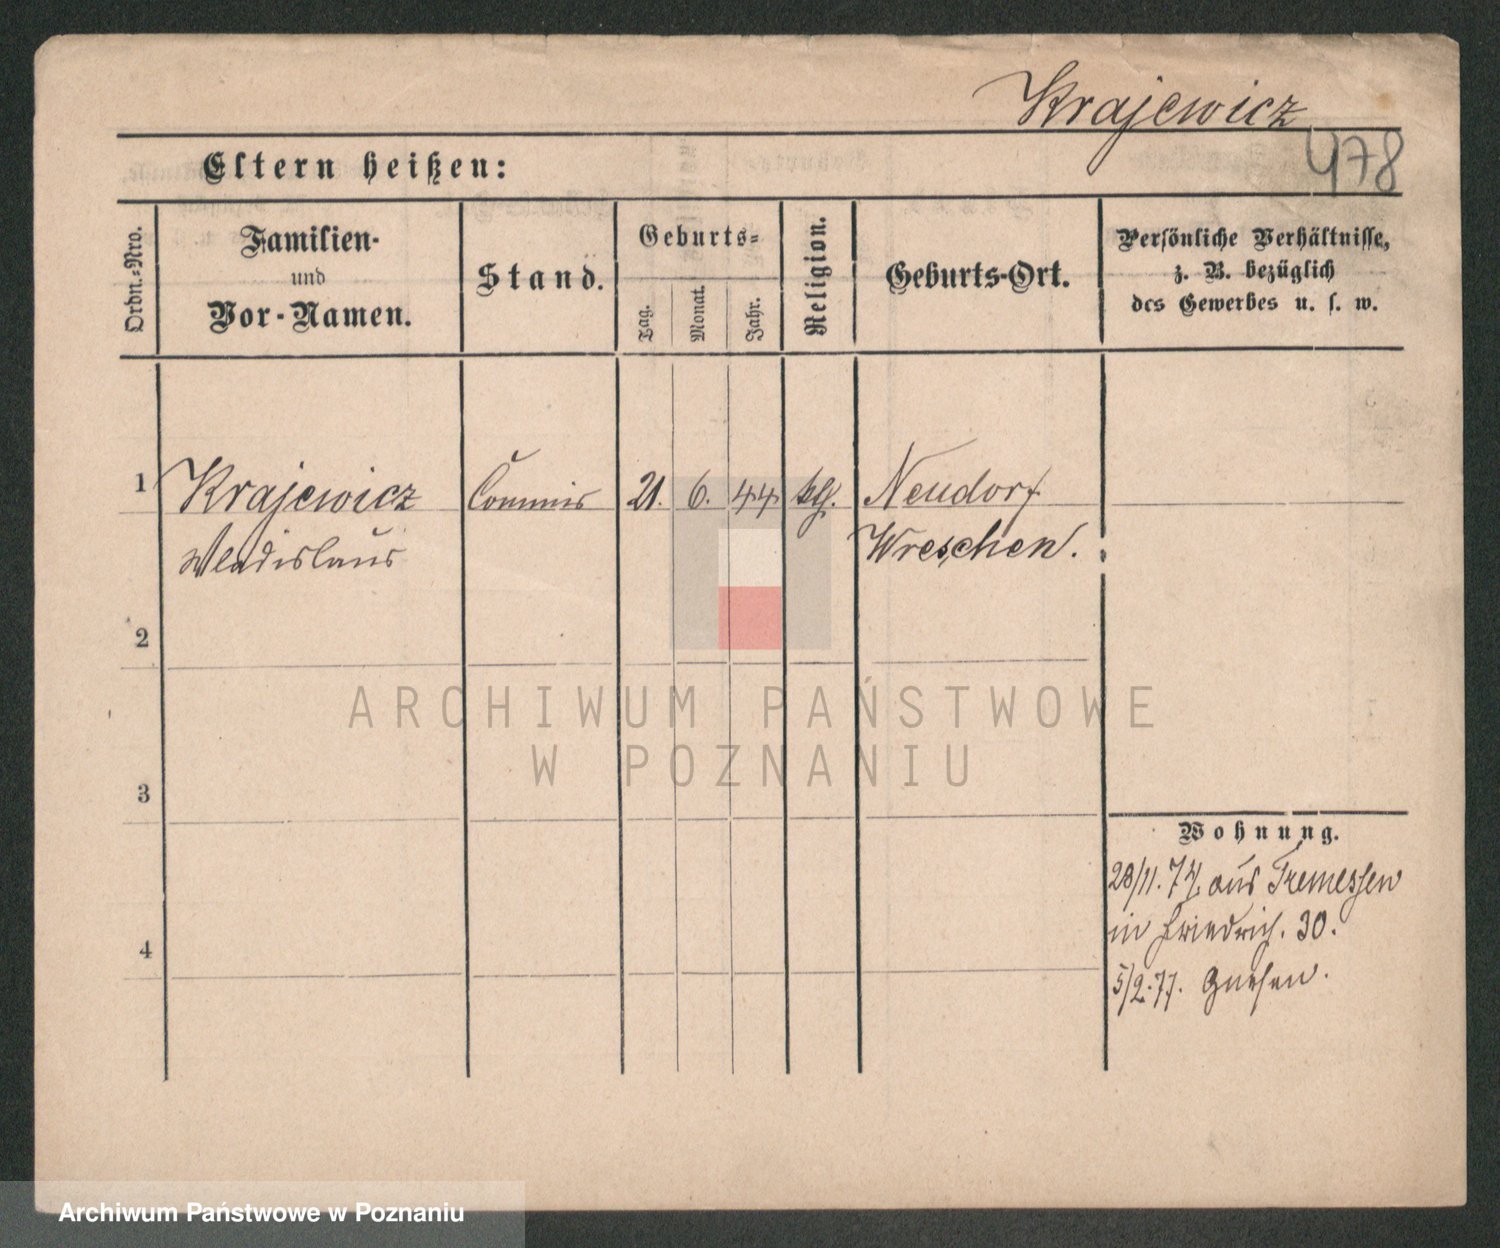 Krajewicz
478
Eltern heißen:
Ordn.-Nro.
Familien-
und
Vor-Namen.
Stand.
Geburts-
Tag.
Monat.
Jahr.
Religion.
Geburts-Ort.
Persönliche Verhältnisse,
z. B. bezüglich
des Gewerbes u. s. w.
1 Krajewicz Commis 21. 6. 44. kth. Neudorf
Wladislaus Wreschen.
2
3
4
Wohnung.
28/11. 74. aus Tremessen
in Friedrich. 30.
5/2.77. Gnesen.
ARCHIWUM PAŃSTWOWE
W POZNANIU
Archiwum Państwowe w Poznaniu